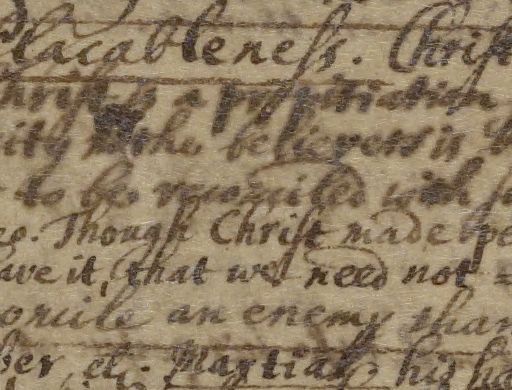 lacableness. Christ
Christ is a propitiation
believers is
to be reconciled with
Though Christ made pe
ave it, that we need not =
oncile an enemy than
ber, et. Martial, his